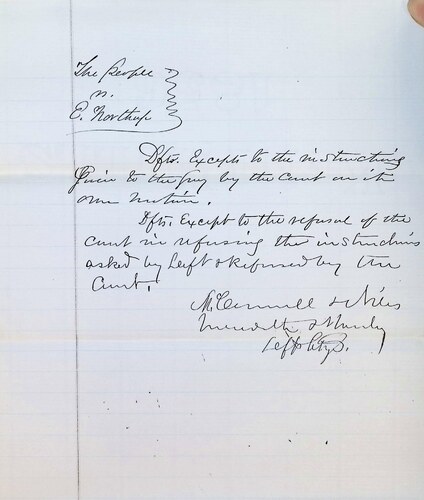 The People
vs.
E. Northup
Dfts. Excepts to the instructions
given to the Jury by the Court on its
own motion.
Dfts. Except to the refusal of the
Court in refusing the instructions
asked by Deft & Refused by the
Court.
McConnell & Niles
Meredith &
Defts Attys.